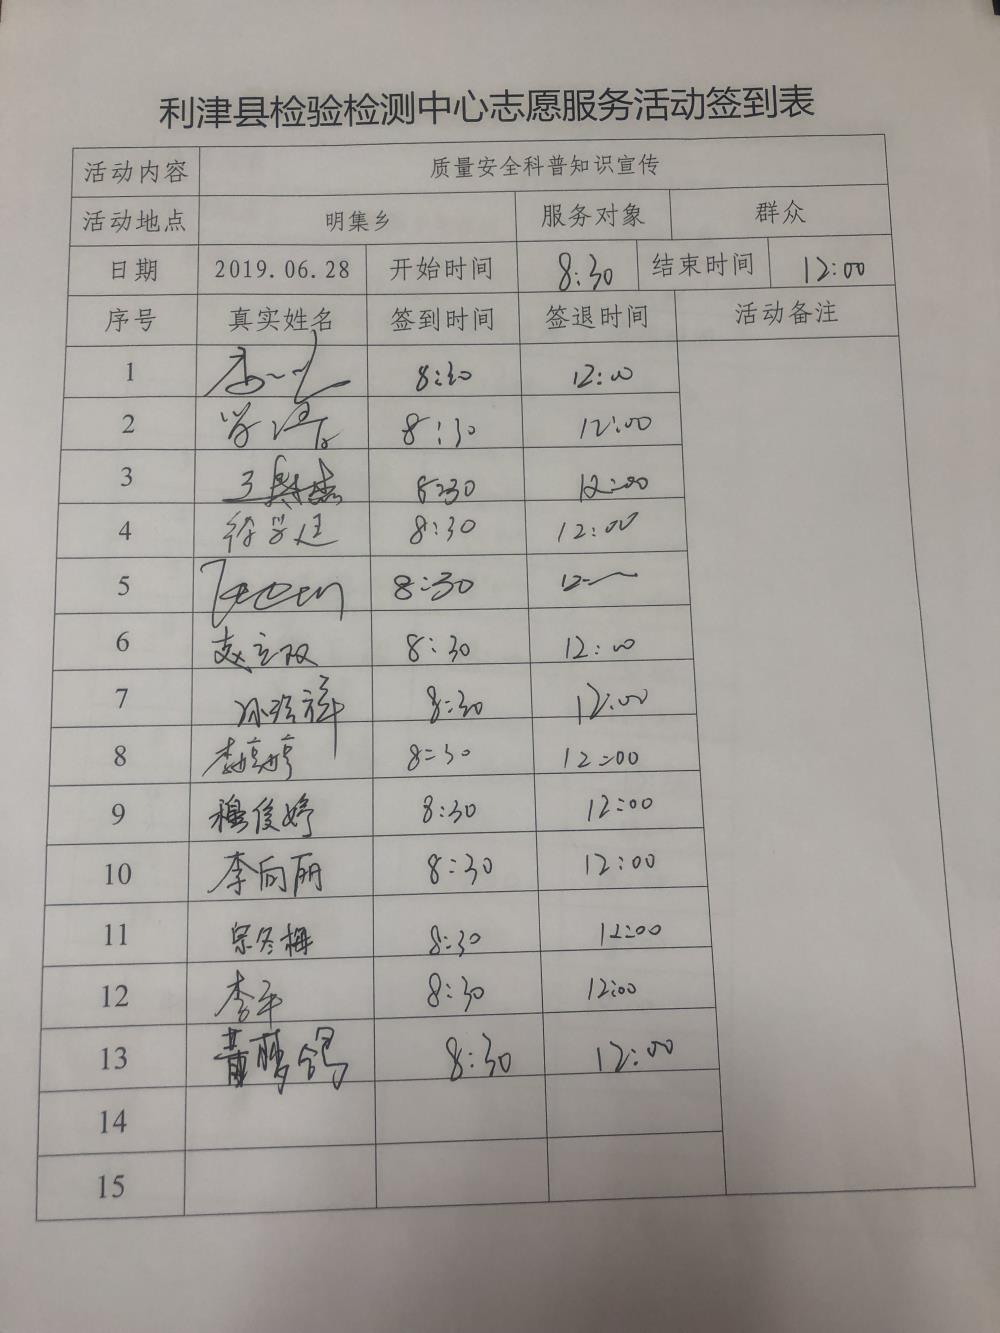 利津县检验检测中心志愿服务活动签到表
活动内容 质量安全科普知识宣传
活动地点 明集乡 服务对象 群众
日期 2019.06.28 开始时间 8:30 结束时间 12:00
序号 真实姓名 签到时间 签退时间 活动备注
1 8:30 12:00
2 8:30 12:00
3 8:30 12:00
4 徐学廷 8:30 12:00
5 8:30 12
6 赵立双 8:30 12:00
7 8:30 12:00
8 李婷婷 8:30 12:00
9 穆俊婷 8:30 12:00
10 李向丽 8:30 12:00
11 宗冬梅 8:30 12:00
12 李平 8:30 12:00
13 黄梦鸽 8:30 12:00
14
15